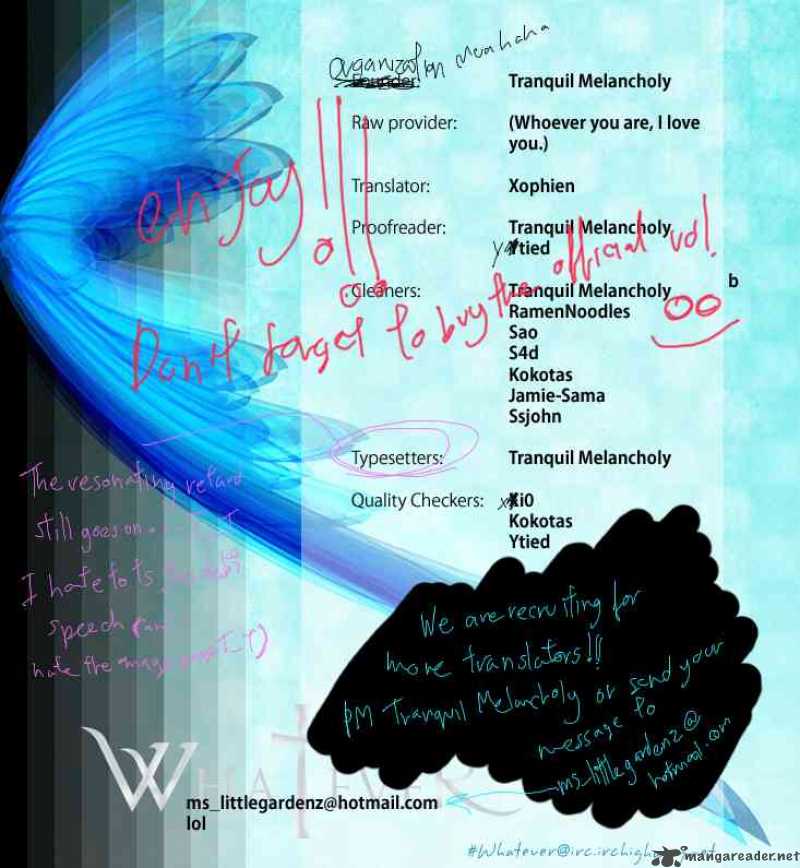 Organization Muahaha
Founder: Tranquil Melancholy
Raw provider: (Whoever you are, I love
you.)
Translator: Xophien
Proofreader: Tranquil Melancholy
Ytied
enjoy!!!
Cleaners: Tranquil Melancholy
RamenNoodles
Sao
S4d
Kokotas
Jamie-Sama
Ssjohn
b
Don't forget to buy the official vol!
Typesetters: Tranquil Melancholy
Quality Checkers: Xi0
Kokotas
Ytied
The resonating retard
still goes on
I hate to ts
speech
hate the
We are recruiting for
more translators!!!
PM Tranquil Melancholy or send your
message to
ms_littlegardenz@
hotmail.com
WHATEVER
ms_littlegardenz@hotmail.com
lol
mangareader.net